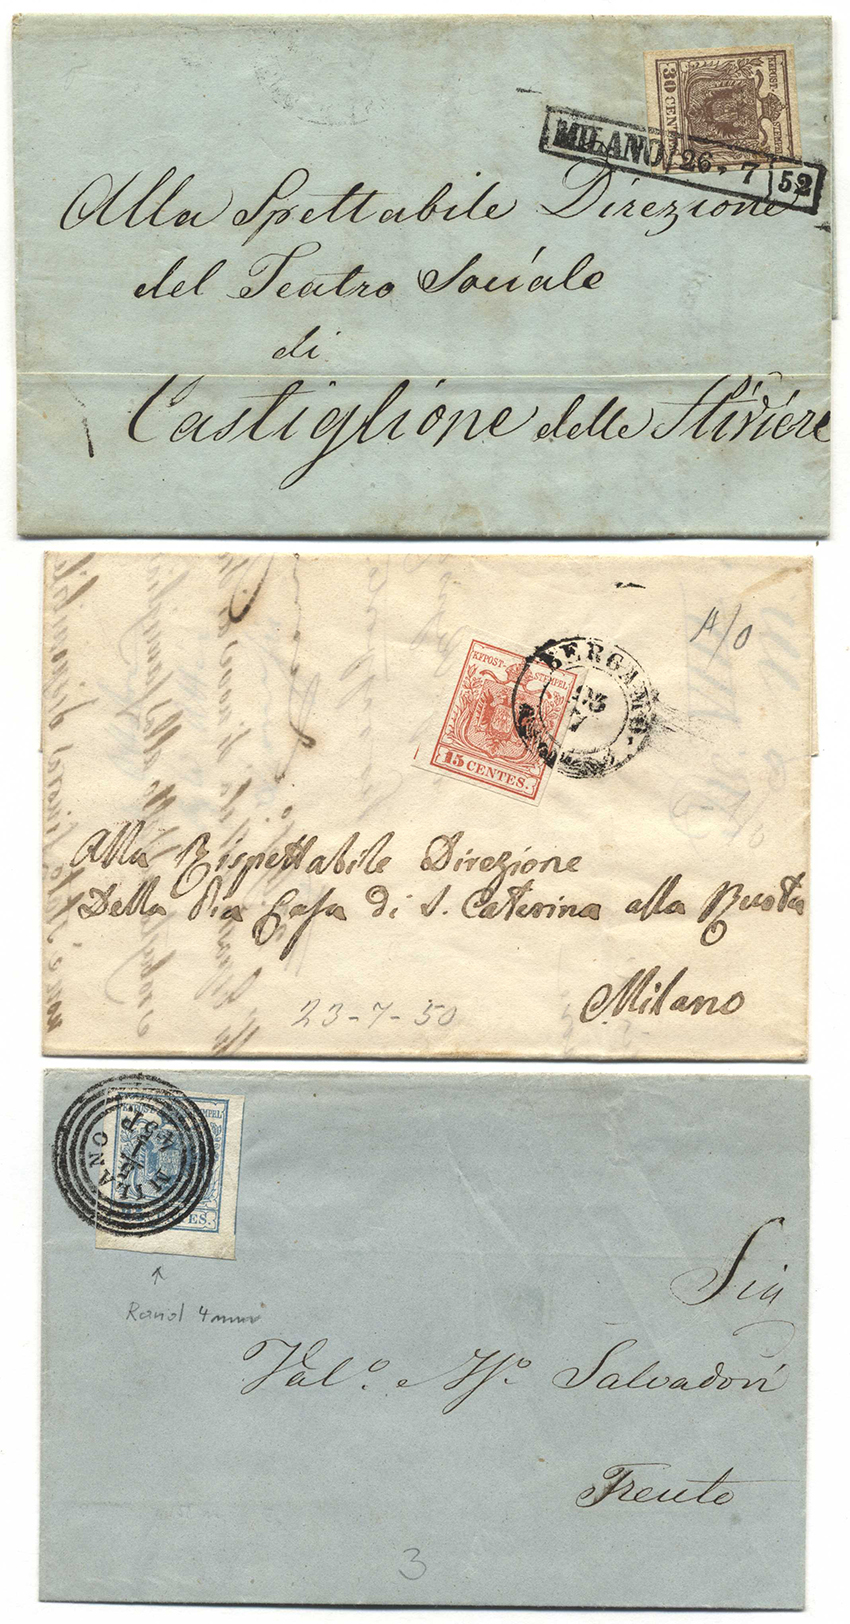 KKPOST-
STEMPEL
30 CENT
MILANO 26. 7 52
Alla Spettabile Direzione
del Teatro Sociale
di
Castiglione delle Stiviere
KKPOST-
STEMPEL
15 CENTES.
BERGAMO
23
7
A/O
Alla Rispettabile Direzione
Della Pia Casa di S. Caterina alla Ruota
Milano
23-7-50
STEMPEL
CENTES.
MILANO
Rand 4mm
Val.º e Salvadori
Trento
3